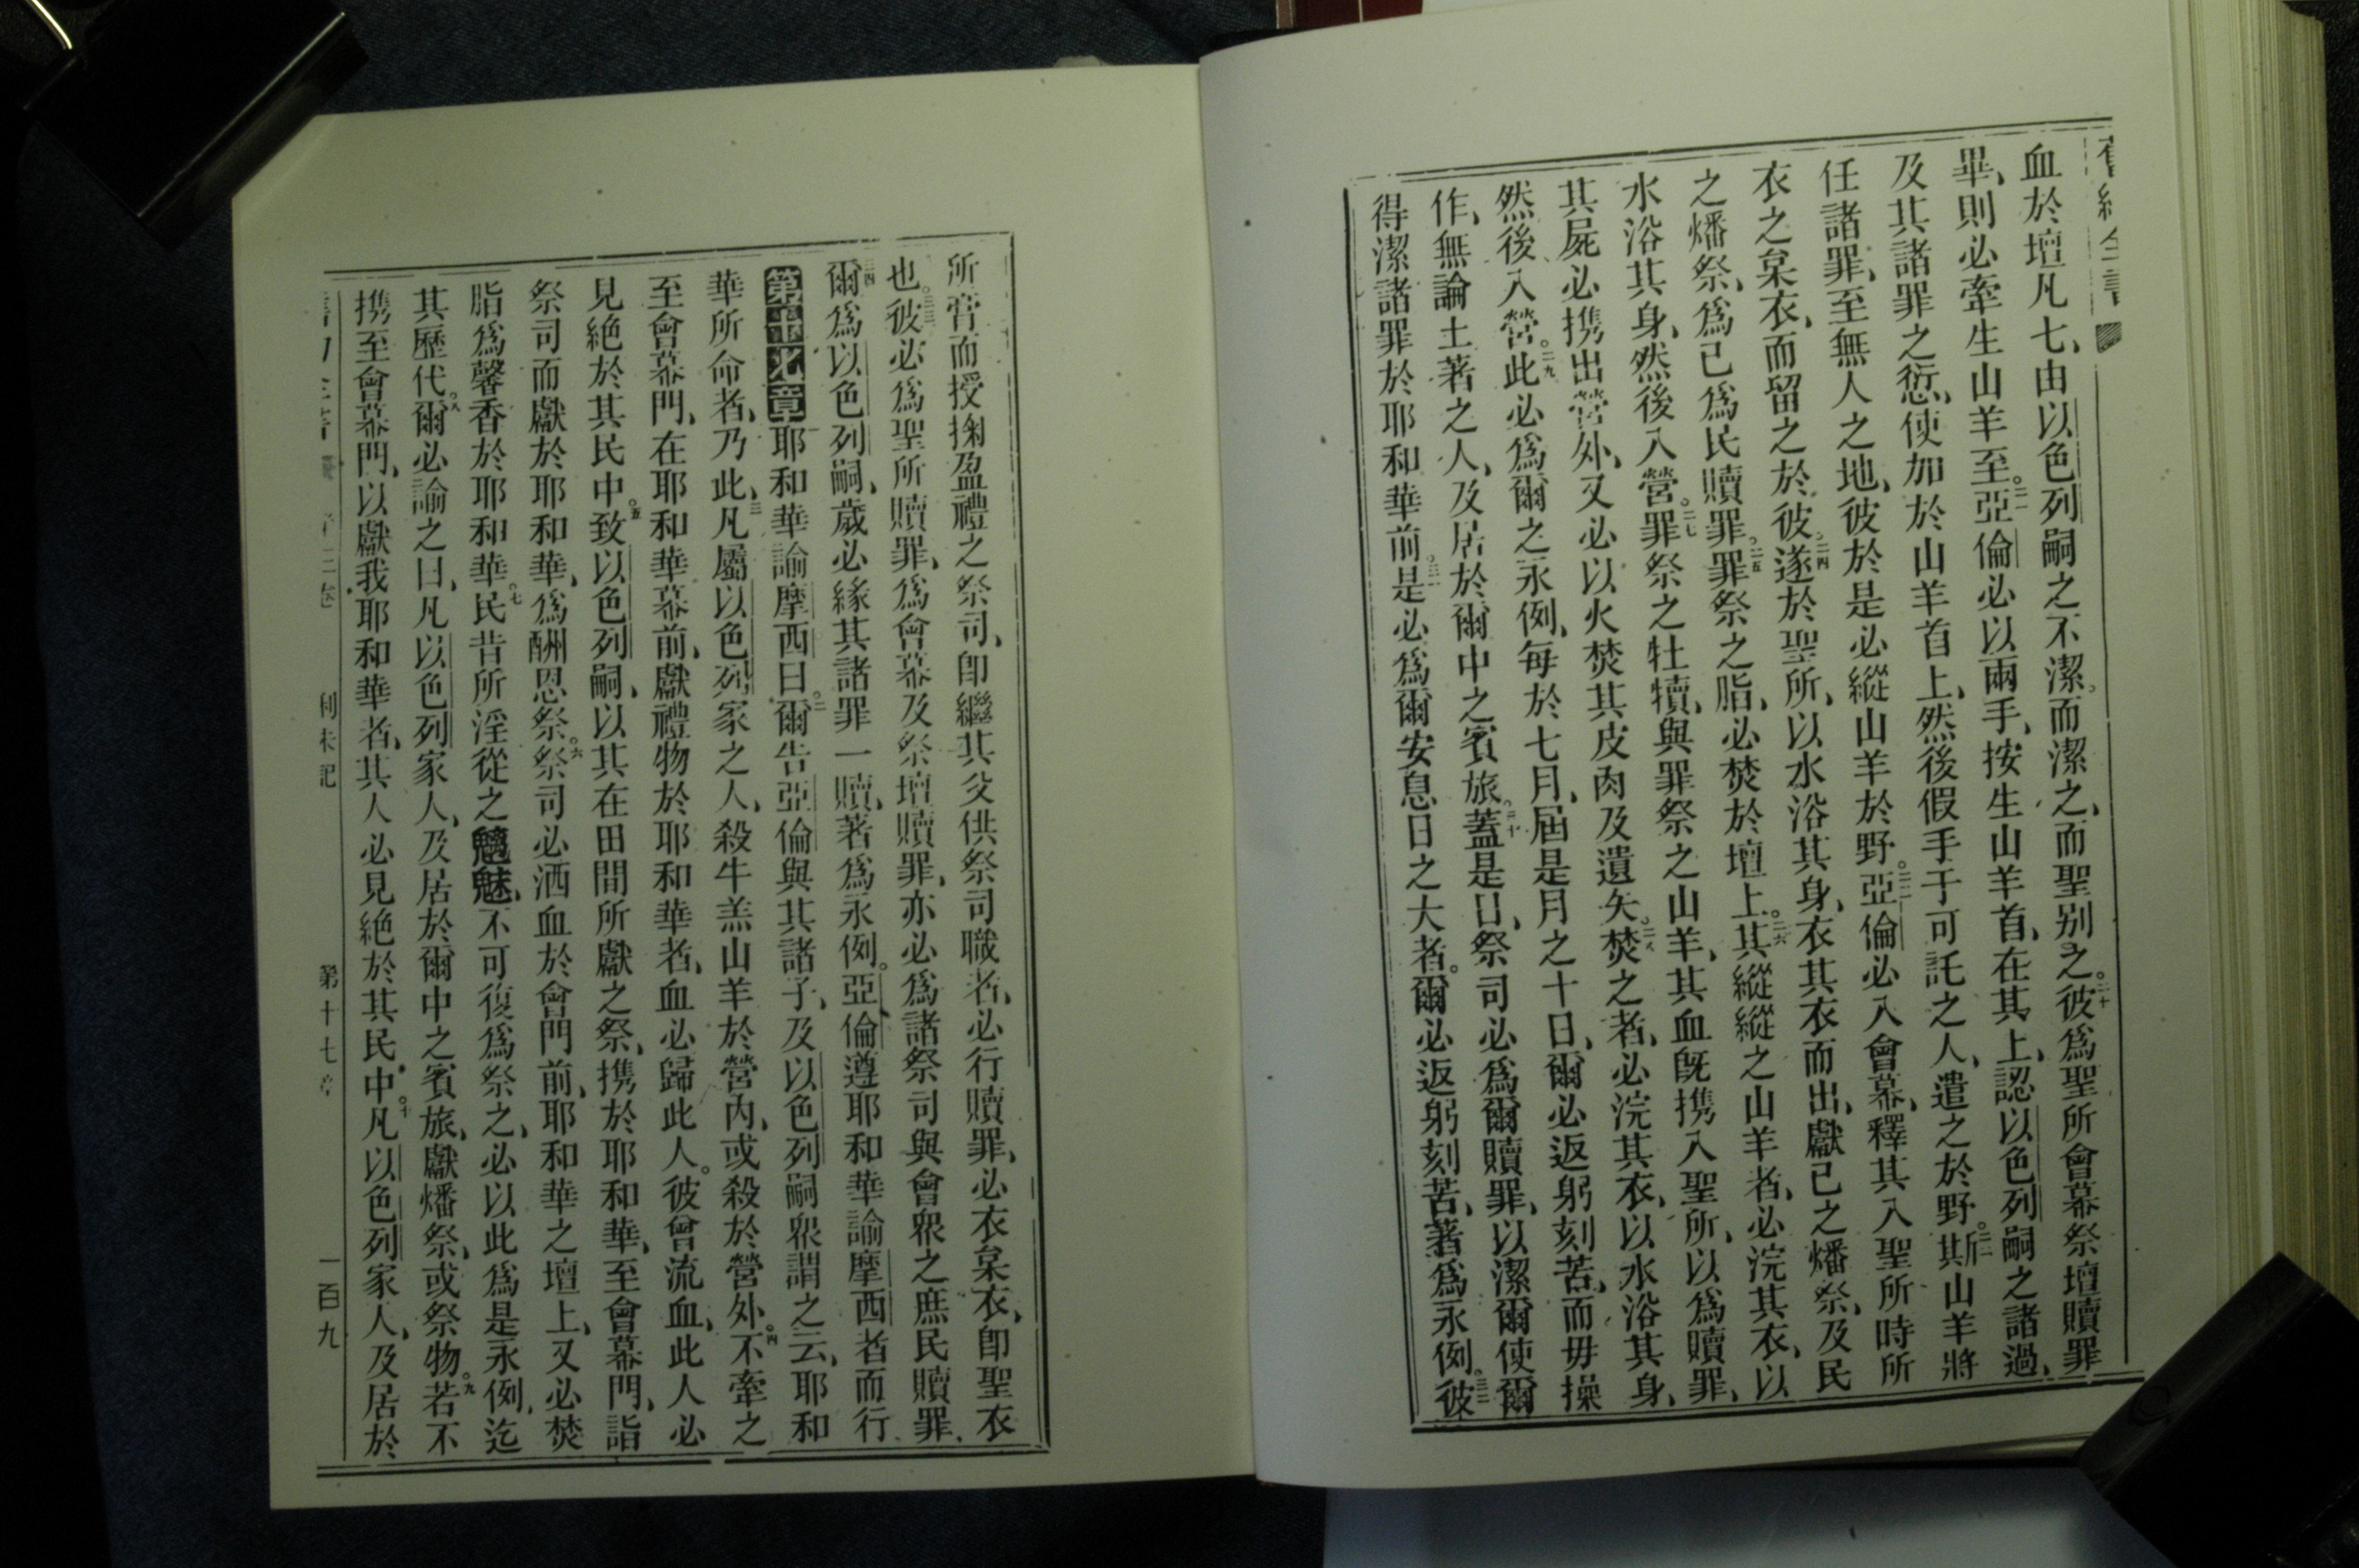 舊約全書
血於壇凡七、由以色列嗣之不潔。而潔之、而聖别之。二十彼爲聖所會幕祭壇贖罪
畢、則必牽生山羊至。二一亞倫必以兩手、按生山羊首、在其上、認以色列嗣之諸過、
及其諸罪之愆、使加於山羊首上、然後假手于可託之人、遣之於野。二二斯山羊將
任諸罪、至無人之地、彼於是必縱山羊於野。二三亞倫必入會幕、釋其入聖所時所
衣之枲衣、而留之於彼。二四遂於聖所、以水浴其身、衣其衣而出、獻已之燔祭、及民
之燔祭、爲已爲民贖罪。二五罪祭之脂、必焚於壇上。二六其縱縱之山羊者、必浣其衣、以
水浴其身、然後入營。二七罪祭之牡犢、與罪祭之山羊、其血旣携入聖所、以爲贖罪、
其屍必携出營外、又必以火焚其皮肉及遺矢。二八焚之者、必浣其衣、以水浴其身、
然後入營。二九此必爲爾之永例、每於七月、屆是月之十日、爾必返躬刻苦、而毋操
作、無論土著之人、及居於爾中之賓旅。三十蓋是日、祭司必爲爾贖罪、以潔爾使爾
得潔諸罪於耶和華前。三一是必爲爾安息日之大者。爾必返躬刻苦、著爲永例。三二彼
所膏而授掬盈禮之祭司、卽繼其父供祭司職者、必行贖罪、必衣枲衣、卽聖衣
也。三三彼必爲聖所贖罪、爲會幕及祭壇贖罪、亦必爲諸祭司與會衆之庶民贖罪、
三四爾爲以色列嗣、歲必緣其諸罪一贖、著爲永例。亞倫遵耶和華諭摩西者而行
第十七章耶和華諭摩西曰。二爾告亞倫與其諸子、及以色列嗣衆謂之云、耶和
華所命者、乃此、三凡屬以色列家之人、殺牛羔山羊於營內、或殺於營外。四不牽之
至會幕門、在耶和華幕前、獻禮物於耶和華者、血必歸此人。彼曾流血、此人必
見絶於其民中。五致以色列嗣、以其在田間所獻之祭、携於耶和華、至會幕門、詣
祭司而獻於耶和華、爲酬恩祭。六祭司必洒血於會門前、耶和華之壇上、又必焚
脂爲馨香於耶和華。七民昔所淫從之魑魅、不可復爲祭之、必以此爲是永例、迄
其歷代。八爾必諭之曰、凡以色列家人、及居於爾中之賓旅、獻燔祭、或祭物。九若不
携至會幕門、以獻我耶和華者、其人必見絶於其民中。十凡以色列家人、及居於
利未記 第十七章 一百九